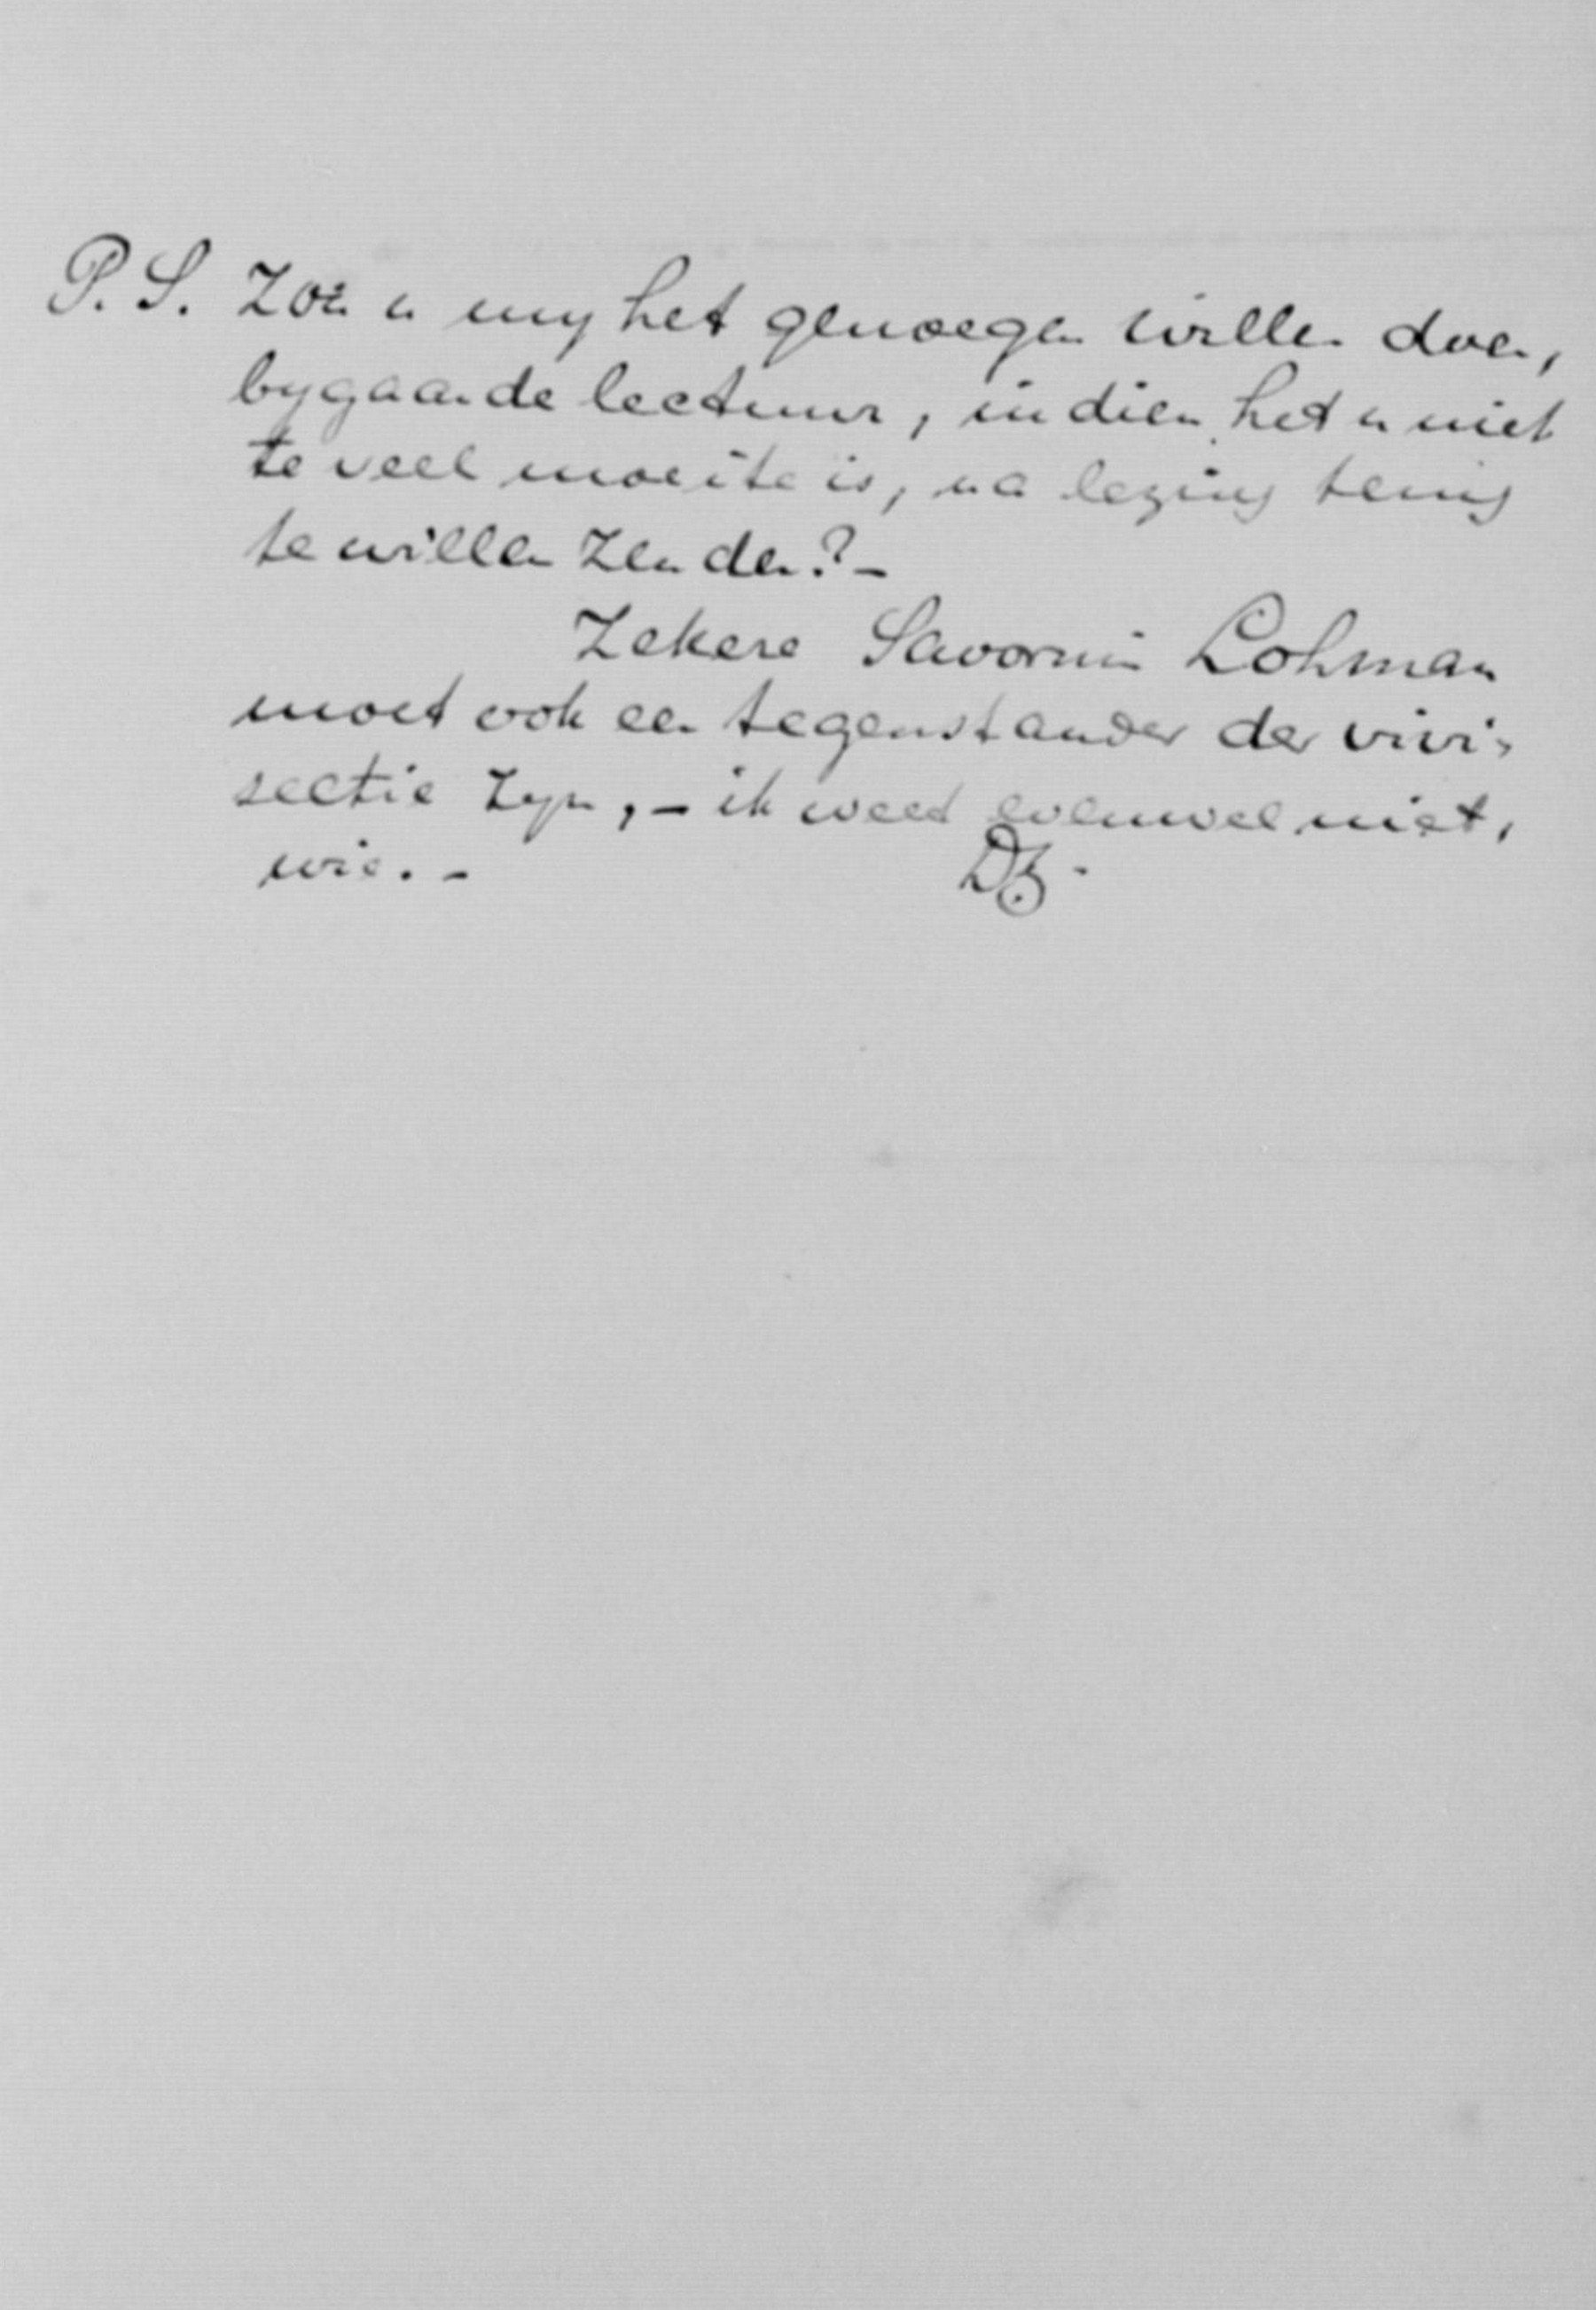 P.S. Zou u my het genoegen willen doen,
bygaande lectuur, indien het u niet
te veel moeite is, na lezing terug
te willen zenden?-
Zekere Savornin Lohman
moet ook een tegenstander der vivi-
sectie zyn,- ik weet evenwel niet,
wie.- DB.